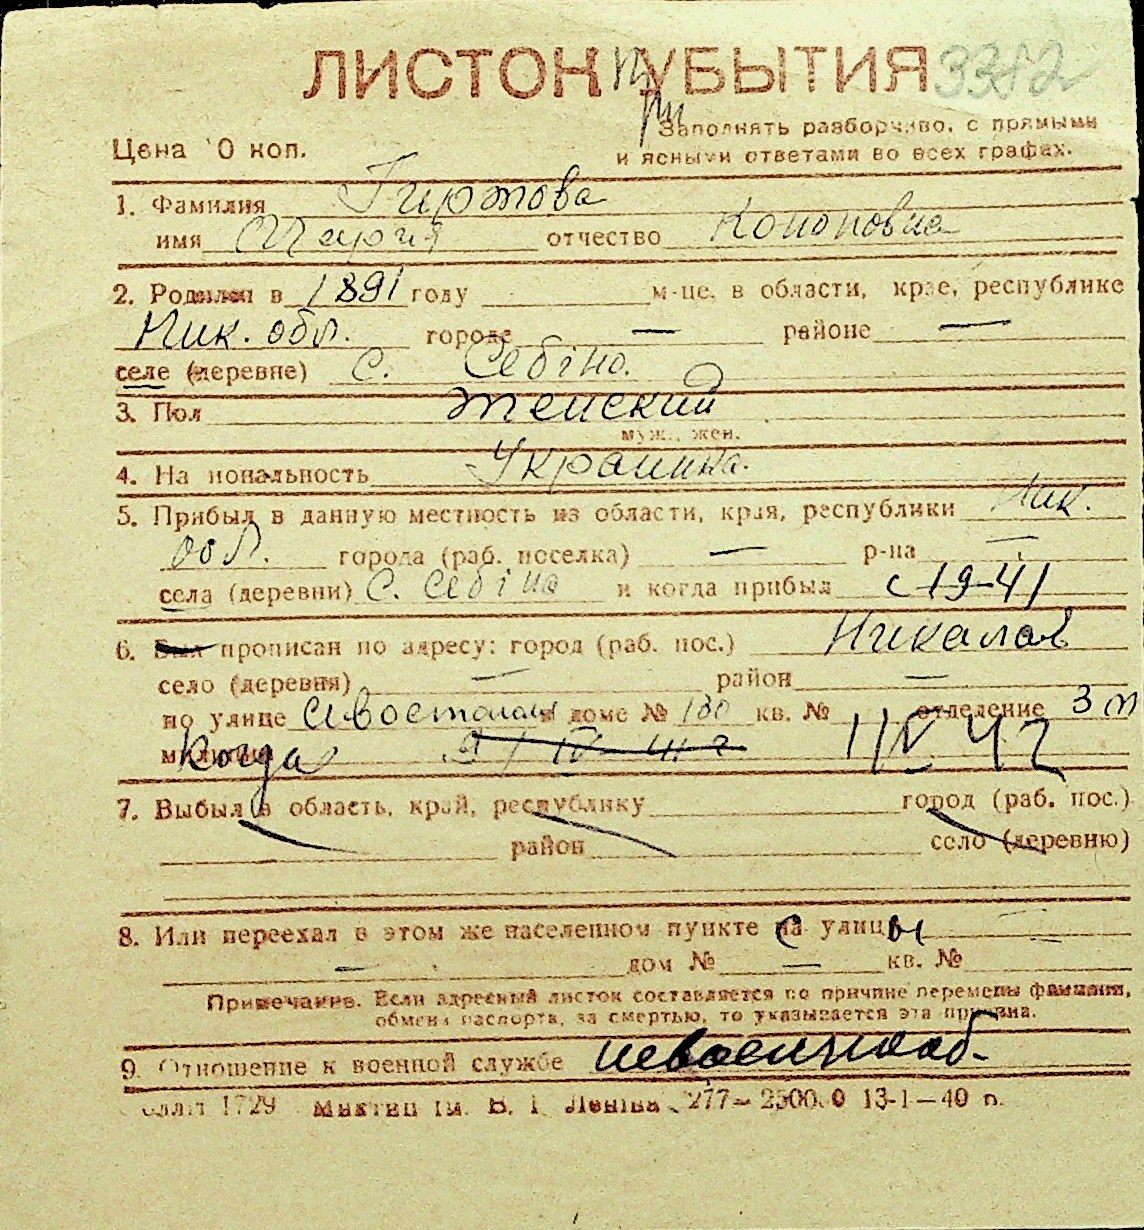 ЛИСТОК УБЫТИЯ 3382
Цена 10 коп.
Заполнять разборчиво, с прямыми
и ясными ответами во всех графах.
1. Фамилия Гиржова
имя Мария отчество Кононовна
2. Родился в 1891 году м-це, в области, крае, республике
Ник. обл. городе — районе —
селе (деревне) с. Себіно.
3. Пол женский
муж., жен.
4. Национальность Украинка.
5. Прибыл в данную местность из области, края, республики Ник.
обл. города (раб. поселка) — р-на —
села (деревни) с. Себіна и когда прибыл с 1941
6. Был прописан по адресу: город (раб. пос.) Никалаев
село (деревня) — район —
по улице доме № 130 кв. № отделение 3 м
милиции Когда 9/IV 41 г 1/IV 42
7. Выбыл в область, край, республику город (раб. пос.)
район село (деревню)
8. Или переехал в этом же населенном пункте с улицы —
— дом № — кв. №
Примечание. Если адресный листок составляется по причине перемены фамилии,
обмена паспорта, за смертью, то указывается эта причина.
9. Отношение к военной службе невоеннооб-
1729 Миктип ім. В. І. Леніна 277—25000 13-1—40 р.